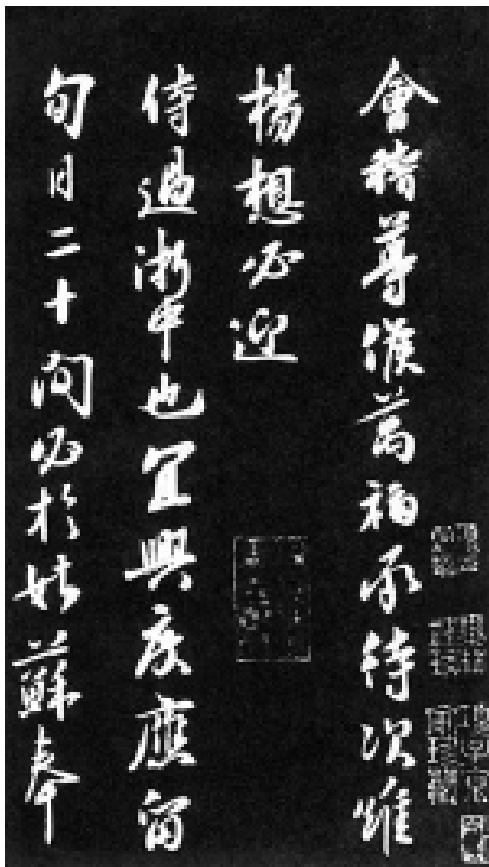 會稽尊候萬福承待次維
楊想必迎
侍過浙中也宜興度應留
旬日二十間必於姑蘇奉